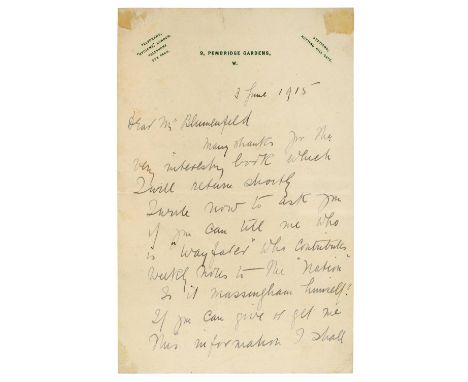 9, PEMBRIDGE GARDENS,
W.
3 June 1915
Dear Mr Blumenfeld
Many thanks for the
very interesting book which
I will return shortly
I write now to ask you
if you can tell me who
is "Wayfarer" who contributes
weekly notes to the "Nation"
Is it Massingham himself?
If you can give or get me
this information I shall